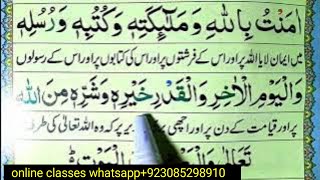 اٰمَنْتُ بِاللّٰهِ وَمَلٰٓئِكَتِهٖ وَكُتُبِهٖ وَرُسُلِهٖ
میں ایمان لایا اللہ پر اور اس کے فرشتوں پر اور اس کی کتابوں پر اور اس کے رسولوں
وَالْيَوْمِ الْاٰخِرِ وَالْقَدْرِ خَيْرِهٖ وَشَرِّهٖ مِنَ اللّٰهِ
پر اور قیامت کے دن پر اور اچھی بری تقدیر پر کہ وہ اللہ تعالیٰ کی طرف
تَعَالٰى الْمَوْتِ ط
online classes whatsapp+923085298910